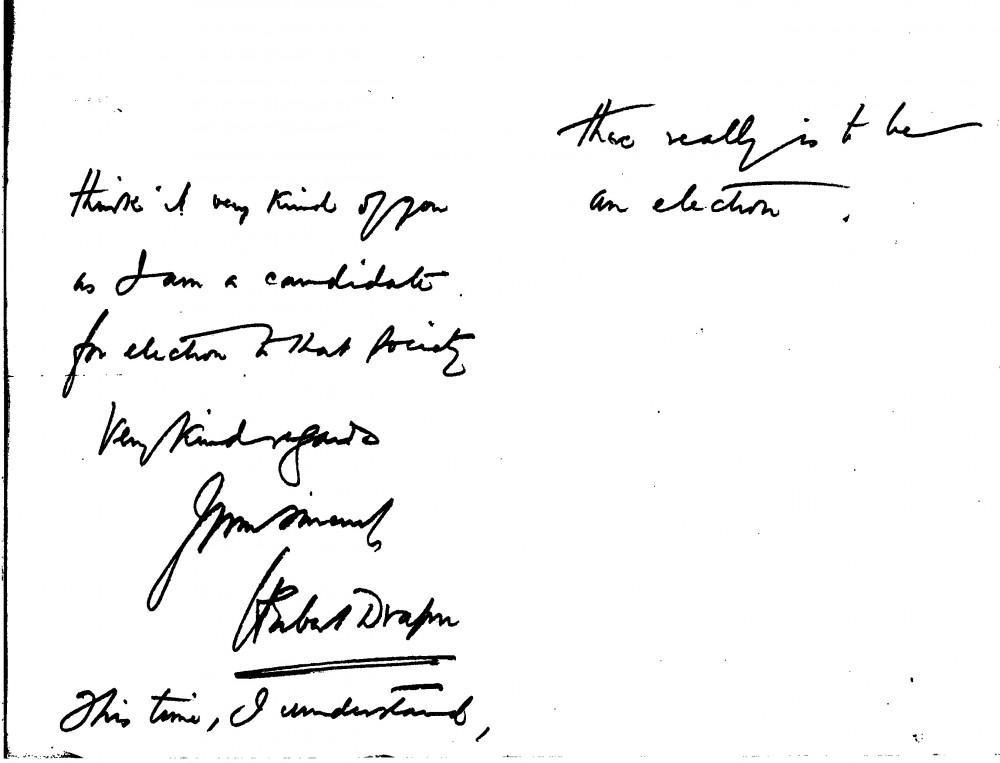 think it very kind of you
as I am a candidate
for election to that Society
Very kind regards
Yours sincerely
Herbert Draper
This time, I understand,
there really is to be
an election.